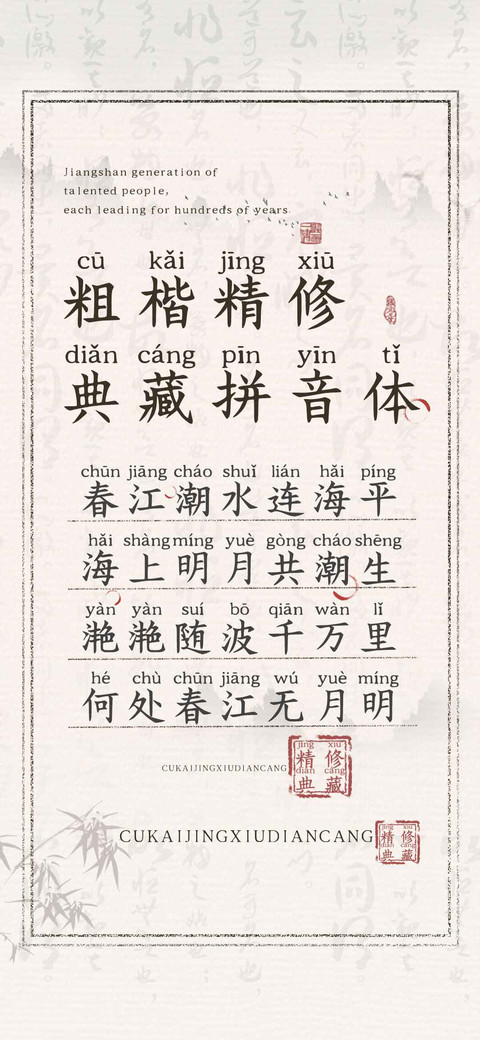 Jiangshan generation of
talented people,
each leading for hundreds of years
cū kǎi jīng xiū
粗楷精修
diǎn cáng pīn yīn tǐ
典藏拼音体
chūn jiāng cháo shuǐ lián hǎi píng
春江潮水连海平
hǎi shàng míng yuè gòng cháo shēng
海上明月共潮生
yàn yàn suí bō qiān wàn lǐ
滟滟随波千万里
hé chù chūn jiāng wú yuè míng
何处春江无月明
CUKAIJINGXIUDIANCANG
jīng xiū
精修
diǎn cáng
典藏
CUKAIJINGXIUDIANCANG
jīng xiū
精修
diǎn cáng
典藏